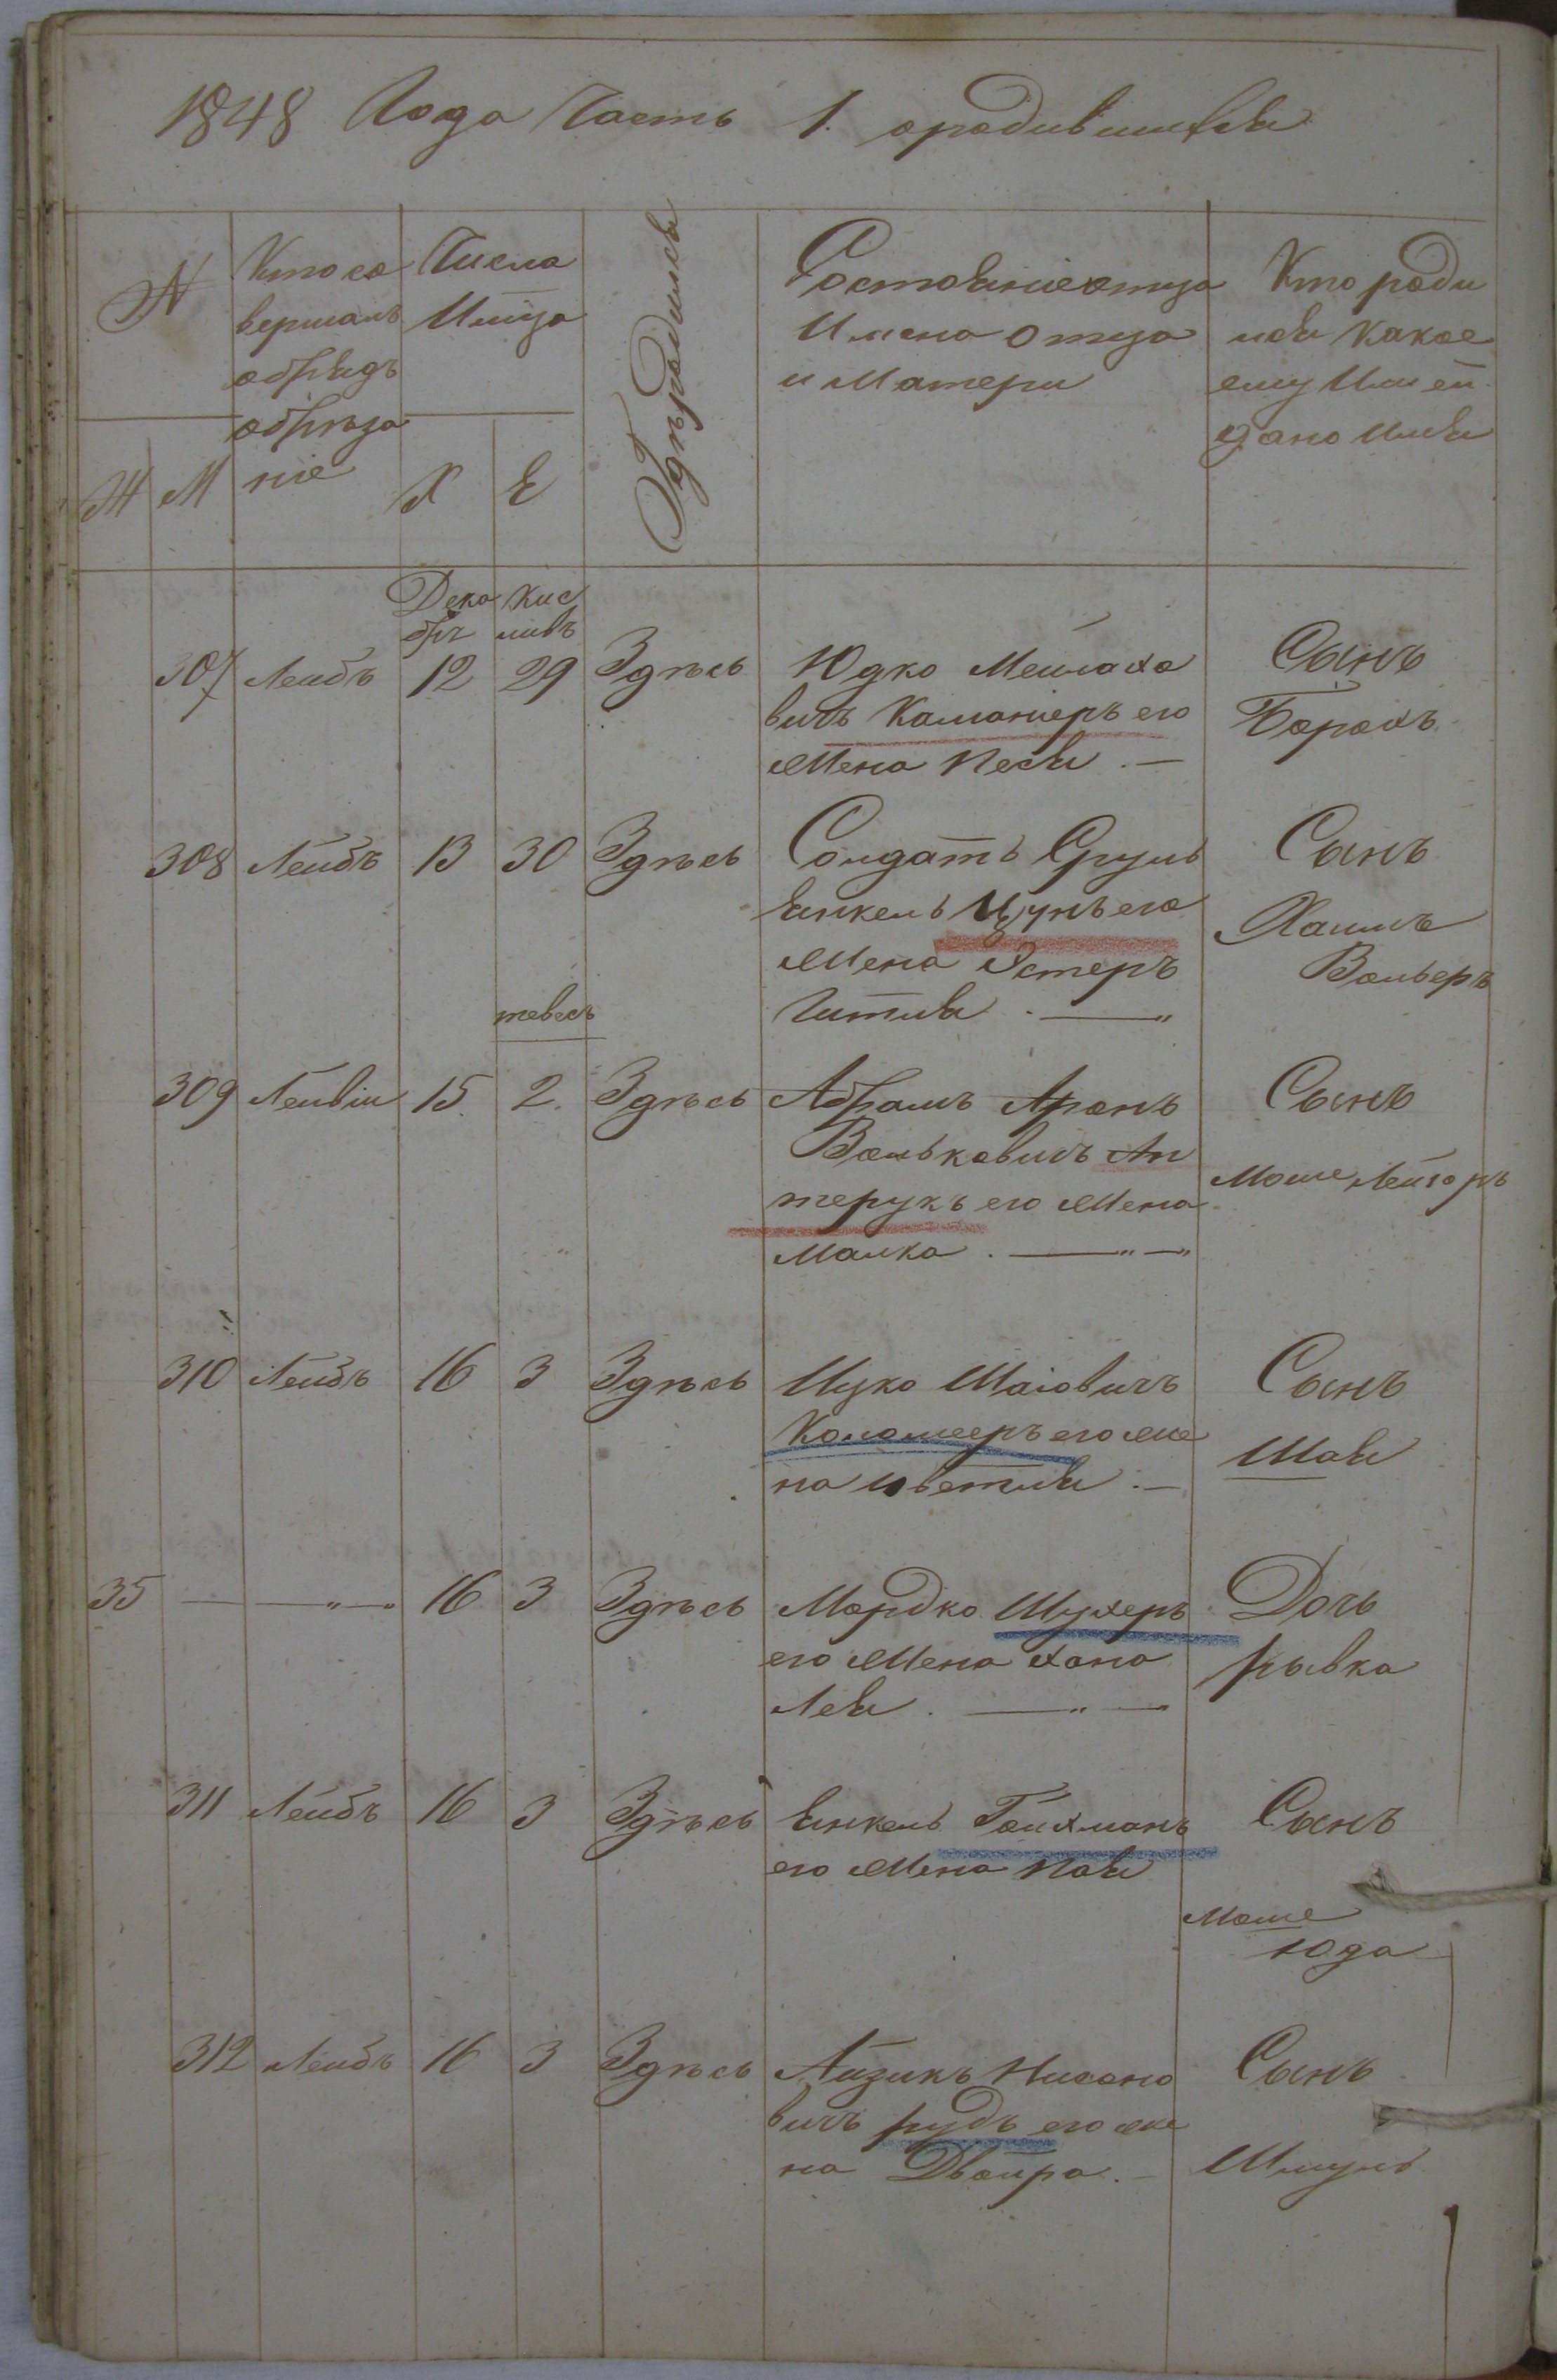 1848 Года Часть 1. ородившихся
N
Кто со
вершалъ
обрядъ
обреза
ніе
Числа
Мѣца
Где родился
Состояніе отца
Имена отца
и Матери
Кто роди
лся какое
ему Или ей
дано Имя
Ж М Х Е
Дека
брь
Кис
ливъ
307 Лейбъ 12 29 Здѣсь Юдко Мейлахо
вичъ Каманеръ его
Жена Песя . —
Сынъ
Борохъ
308 Лейбъ 13 30 Здѣсь Солдатъ Сруль
Янкель Цунъ его
Жена Эстеръ
Гитля . —
Сынъ
Хаимъ
Вольеръ
тевесъ
309 Лейвіи 15 2. Здѣсь Абрамъ Аронъ
Вольковичъ Ап
терукъ его Жена
Малка . —
Сынъ
Моше Лейзоръ
310 Лейбъ 16 3 Здѣсь Ицко Шаіовичъ
Коломееръ его же
на Цветля . —
Сынъ
Шая
35 — — 16 3 Здѣсь Мордко Шухеръ
его Жена Хана
Лея . —
Дочь
Рывка
311 Лейбъ 16 3 Здѣсь Янкель Гойхманъ
его Жена Хая
Сынъ
Моше
Юда
312 Лейбъ 16 3 Здѣсь Айзикъ Нисоно
вичъ Рудъ его же
на Двойра . —
Сынъ
Шмуль